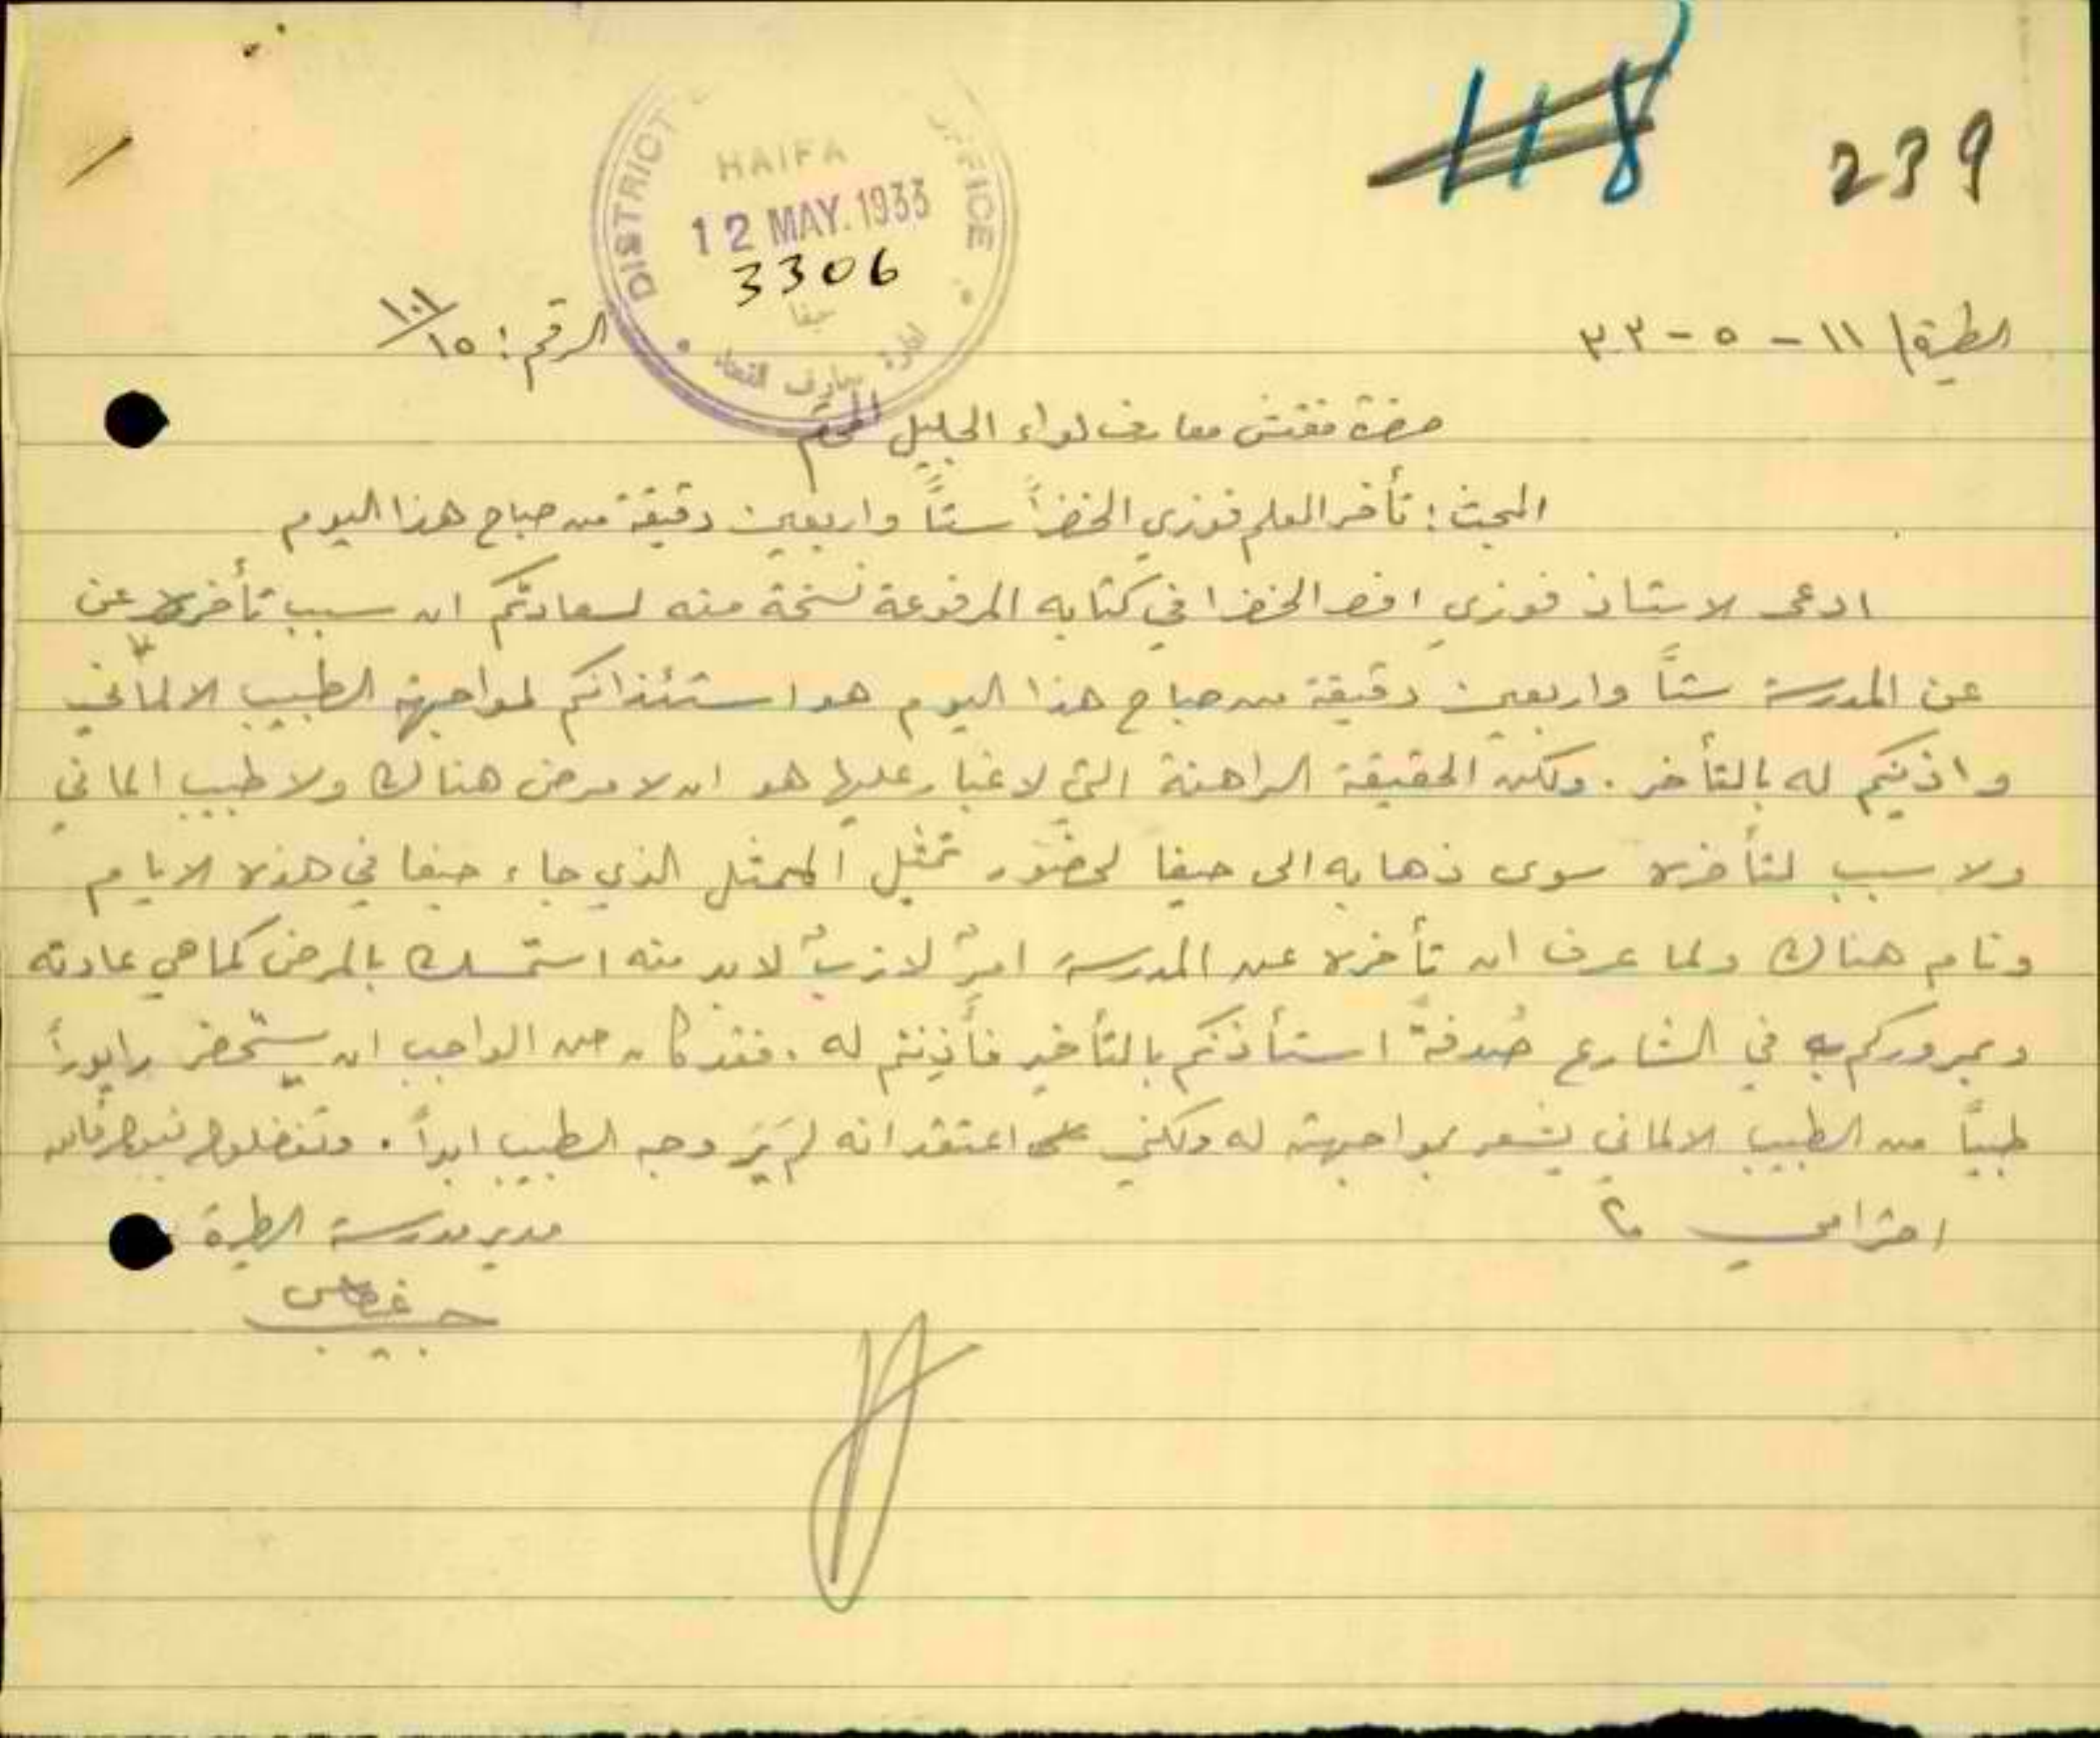 118 239
DISTRICT OFFICE
HAIFA
12 MAY. 1933
3306
حيفا
ادارة معارف القضاء
الطيرة/ ١١ - ٥ - ٣٣
الرقم: ١٠١/١٥
حضرة مفتش معارف لواء الجليل المحترم
المبحث: تأخر المعلم فوزي الخضرا ستاً واربعين دقيقة من صباح هذا اليوم
ادعى الاستاذ فوزي افند الخضرا في كتابه المرفوعة نسخة منه لسعادتكم ان سبب تأخره عن
عن المدرسة ستاً واربعين دقيقة من صباح هذا اليوم هو استئذانكم لمواجهة الطبيب الالماني
واذنكم له بالتأخر. ولكن الحقيقة الراهنة التي لا غبار عليها هو ان لا مرض هناك ولا طبيب الماني
ولا سبب لتأخره سوى ذهابه الى حيفا لحضور تمثيل الممثل الذي جاء حيفا في هذه الايام
ونام هناك ولما عرف ان تأخره عن المدرسة امرٌ لازبٌ لابد منه استمسك بالمرض كما هي عادته
وبمروركم في الشارع صُدفةً استأذنكم بالتأخير فأذنتم له. فقد كان من الواجب ان يستحضر رابوراً
طبياً من الطبيب الالماني يشعر بمواجهته له ولكني اعتقد انه لم يَرَ وجه الطبيب ابداً. وتفضلوا بقبول فائق
احترامي
مدير مدرسة الطيرة
حبيب